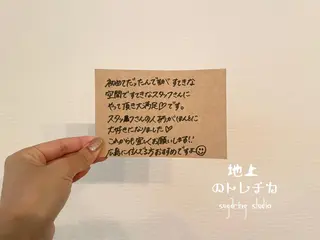 初めてだったんですが すてきな
空間ですてきなスタッフさんに
やって頂き大満足♡です。
スタッフさんの人あたりがほんとに
大好きになりました♡
これからも宜しくお願いします!!
広島に住んでる方おすすめですよ☺
地上
のトレチカ